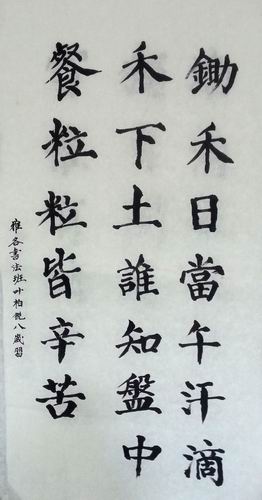 鋤禾日當午汗滴
禾下土誰知盤中
餐粒粒皆辛苦
雅各書法班叶柏悦八歲習